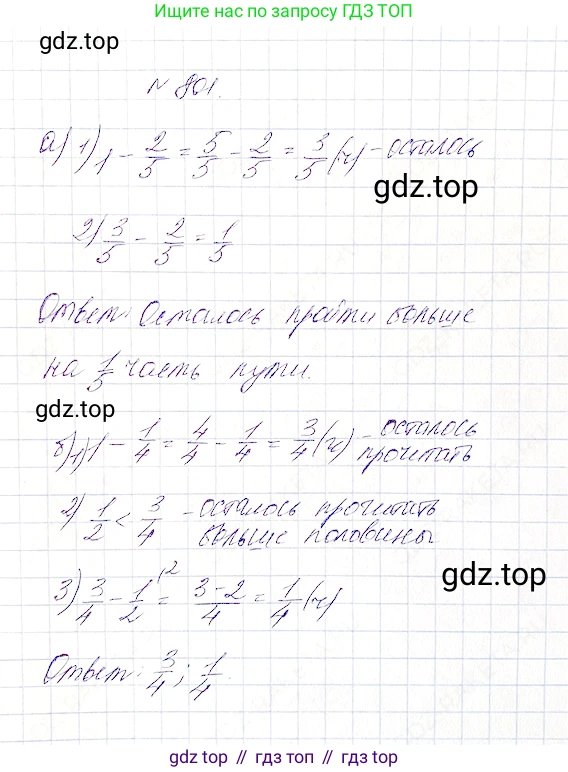 Ищите нас по запросу ГДЗ ТОП
gdz.top
N 801.
а) 1) 1 - 2/5 = 5/5 - 2/5 = 3/5 (ч) - осталось
gdz.top
2) 3/5 - 2/5 = 1/5
Ответ: Осталось пройти больше
на 1/5 часть пути.
gdz.top
б) 1) 1 - 1/4 = 4/4 - 1/4 = 3/4 (ч) - осталось
прочитать
2) 1/2 < 3/4 - осталось прочитать
больше половины
gdz.top
3) 3/4 - 1/2 (2 = 3-2/4 = 1/4 (ч)
Ответ: 3/4; 1/4.
gdz top // гдз топ // gdz top